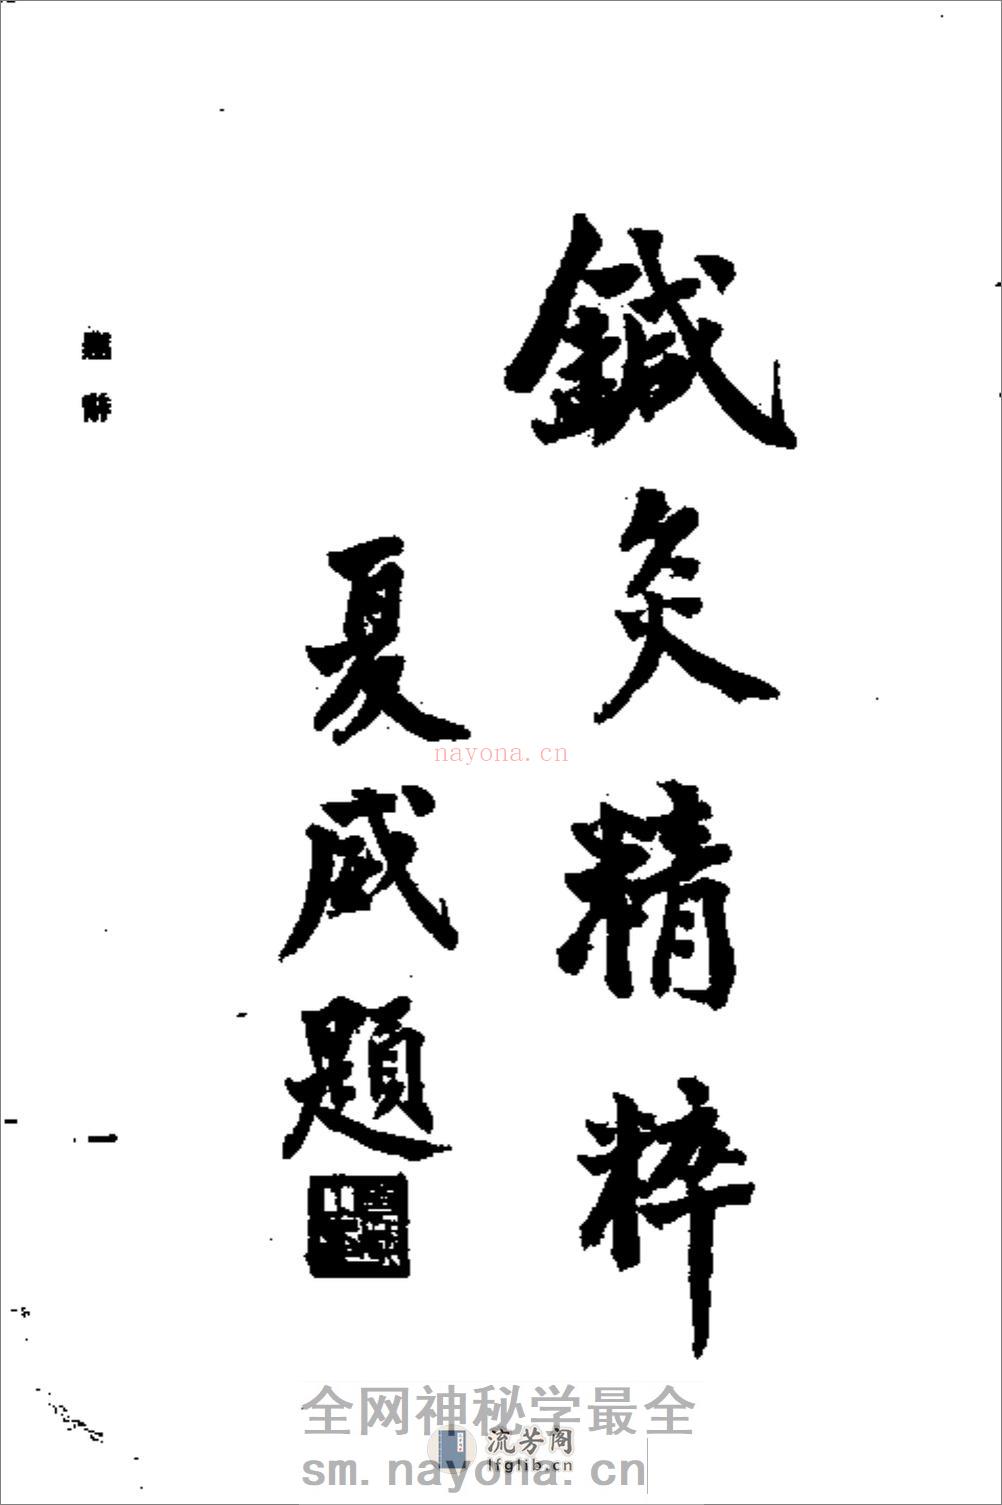 鍼灸精粹
夏威題
題辭
一
nayona.cn
全网神秘学最全
流芳阁
lfglib.cn
sm.nayona.cn